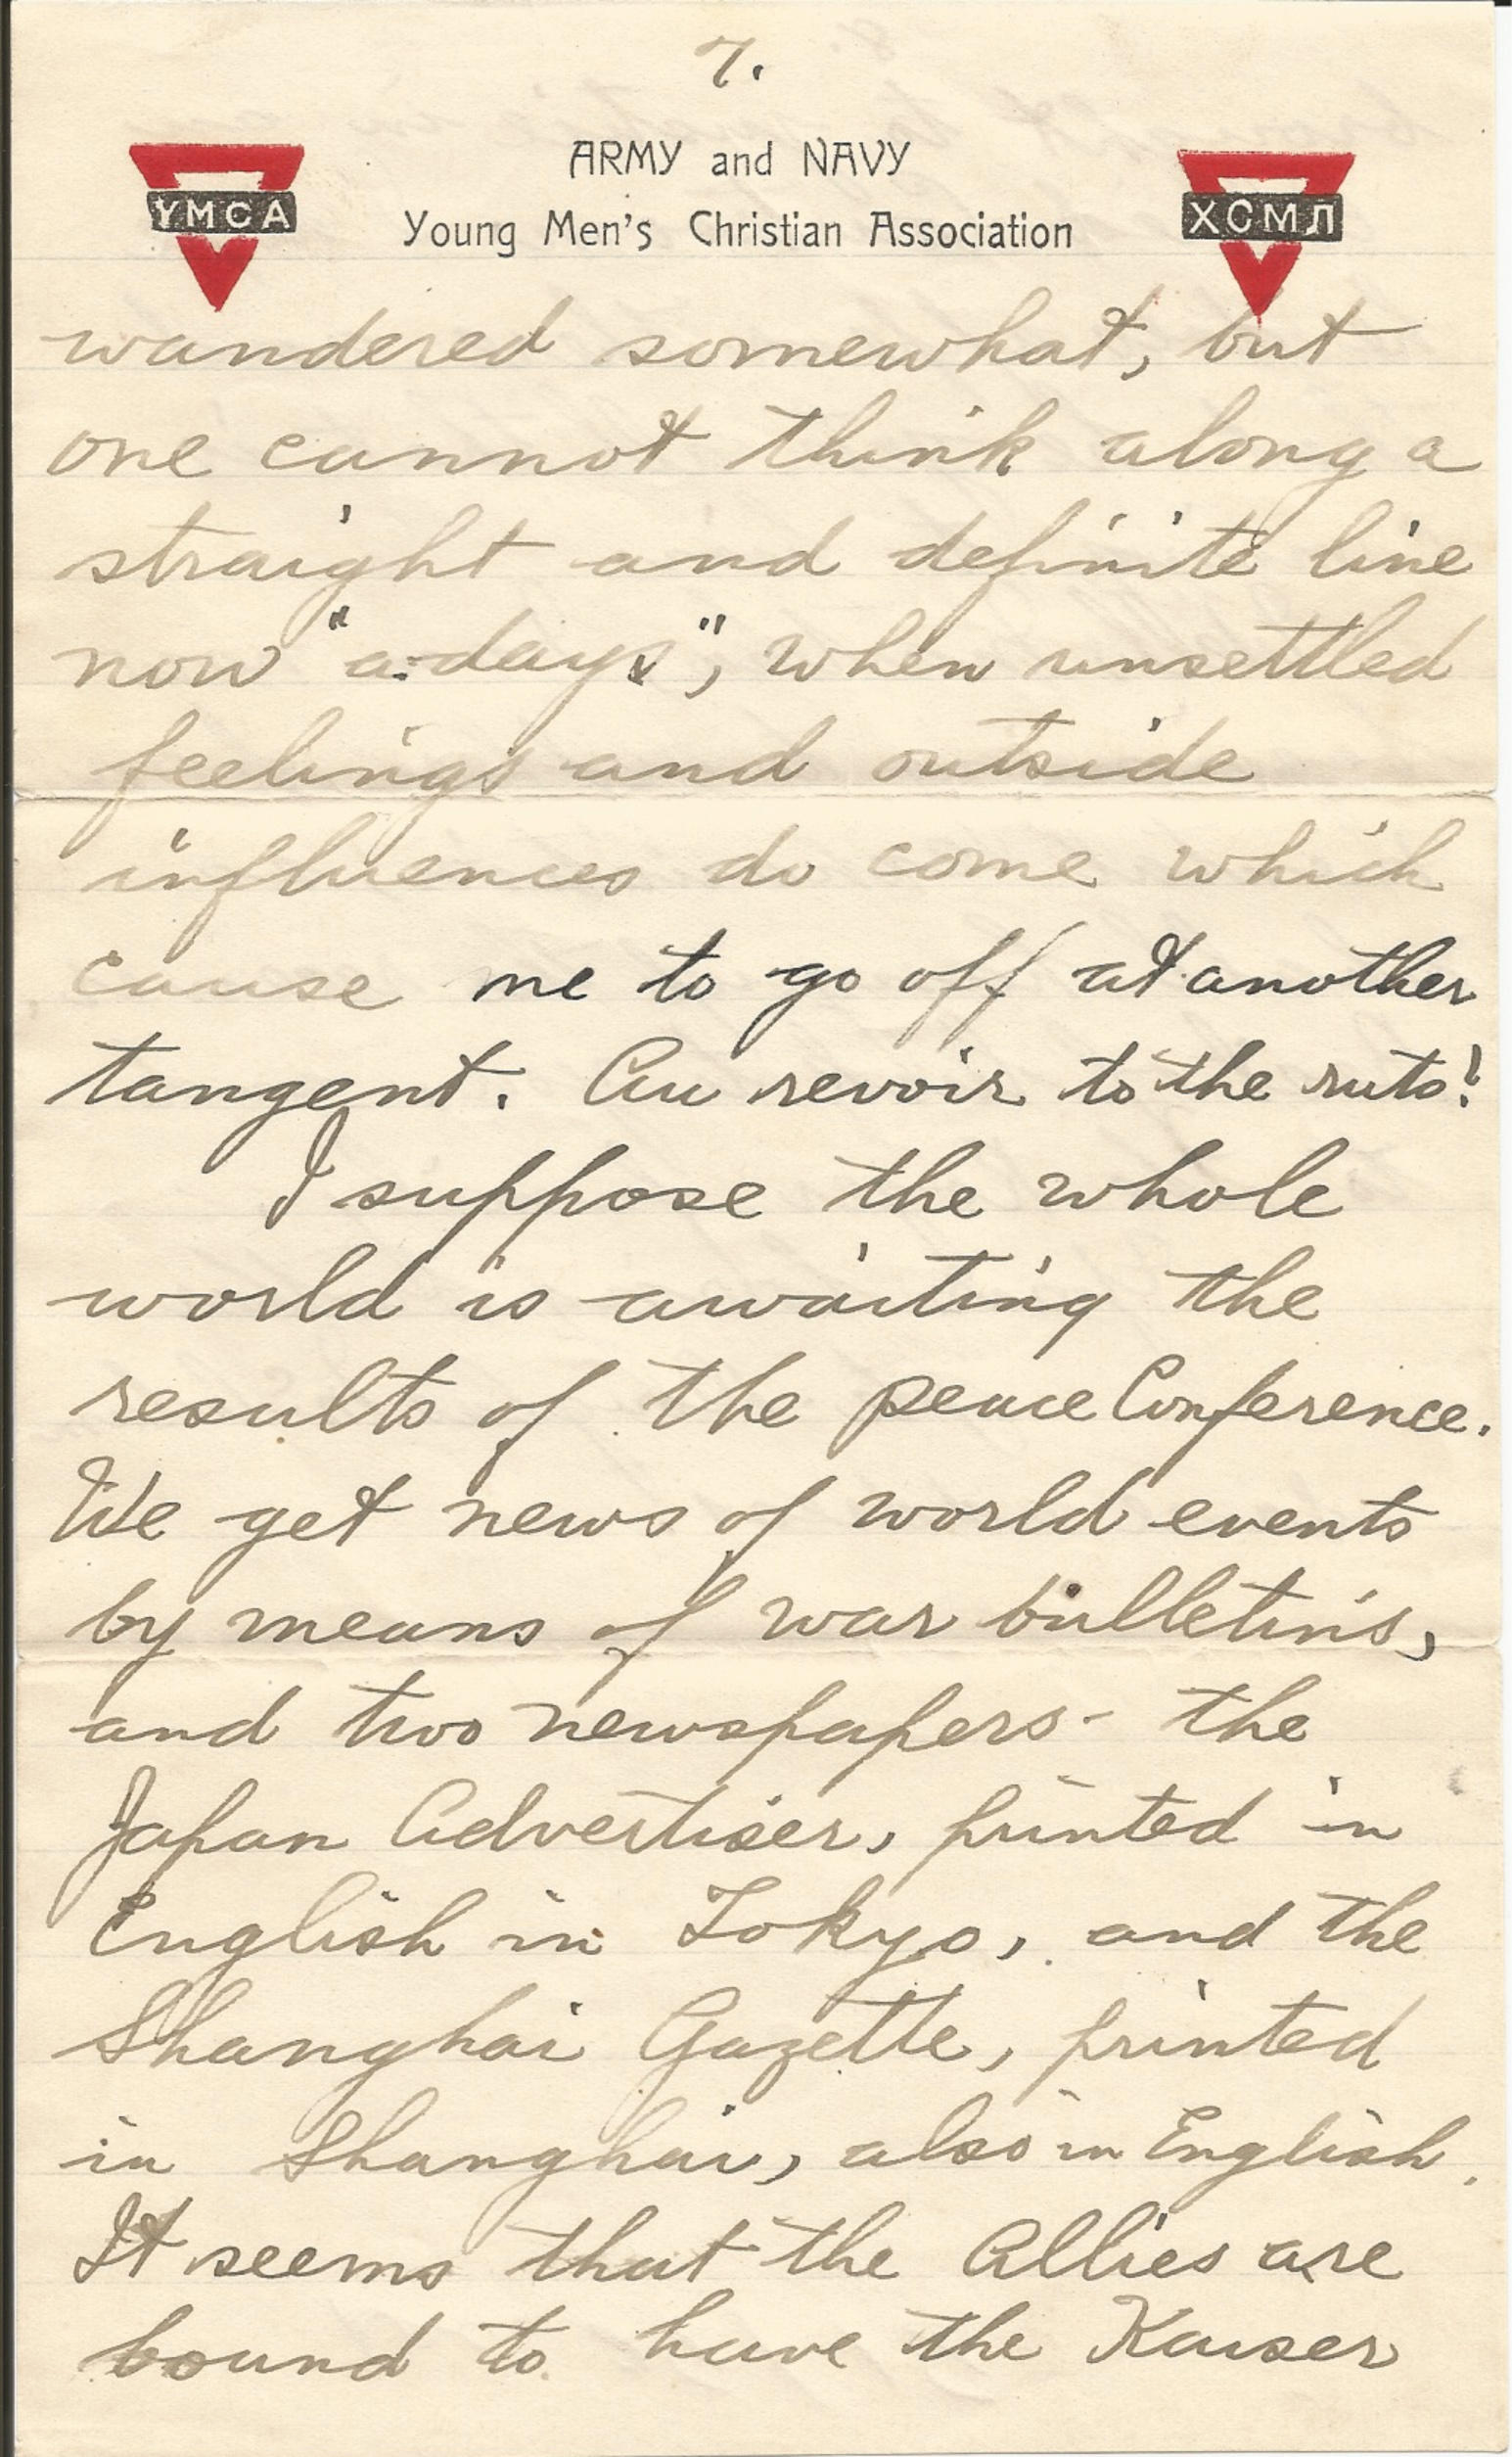 7.
ARMY and NAVY
YMCA
ХСМЛ
Young Men's Christian Association
wandered somewhat, but
one cannot think along a
straight and definite line
now "a-days", when unsettled
feelings and outside
influences do come which
cause me to go off at another
tangent. Au revoir to the ruts!
I suppose the whole
world is awaiting the
results of the peace Conference.
We get news of world events
by means of war bulletins,
and two newspapers - the
Japan Advertiser, printed in
English in Tokyo, and the
Shanghai Gazette, printed
in Shanghai, also in English.
It seems that the Allies are
bound to have the Kaiser